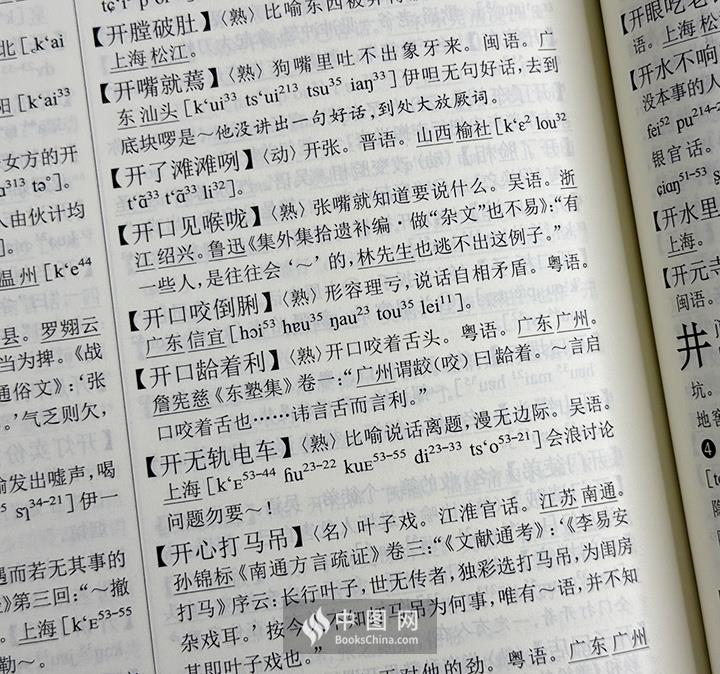 北 [kʻai
阳 [kʻai³³
女方的开
人由伙计均
温州 [kʻe⁴⁴
县。罗翙云
当为捭。《战
通俗文》：‘张
。’气乏则欠，
发出嘘声，喝
sʅ³⁴⁻²¹] 伊一
而若无其事的
第三回：“～撤
上海 [kʻᴇ⁵³⁻⁵⁵
勒～。
【开膛破肚】〈熟〉比喻东西被
上海松江。
【开嘴就蔫】〈熟〉狗嘴里吐不出象牙来。闽语。广
东汕头 [kʻui³³ tsʻui²¹³ tsu³⁵ iaŋ³³] 伊呾无句好话，去到
底块啰是～他没讲出一句好话，到处大放厥词。
【开了滩滩咧】〈动〉开张。晋语。山西榆社 [kʻɛ² lou³²
tʻɑ̃³³ tʻɑ̃³³ li³²]。
【开口见喉咙】〈熟〉张嘴就知道要说什么。吴语。浙
江绍兴。鲁迅《集外集拾遗补编·做“杂文”也不易》：“有
一些人，是往往会‘～’的，林先生也逃不出这例子。”
【开口咬倒脷】〈熟〉形容理亏，说话自相矛盾。粤语。
广东信宜 [hɔi⁵³ hɐu³⁵ ŋau²³ tou³⁵ lei¹¹]。
【开口龄着利】〈熟〉开口咬着舌头。粤语。广东广州。
詹宪慈《东塾集》卷一：“广州谓齩(咬)曰龄着。一言启
口咬着舌也……讳言舌而言利。”
【开无轨电车】〈熟〉比喻说话离题，漫无边际。吴语。
上海 [kʻᴇ⁵³⁻⁴⁴ ɦu²³⁻²² kuᴇ⁵³⁻⁵⁵ di²³⁻³³ tsʻo⁵³⁻²¹] 会浪讨论
问题勿要～！
【开心打马吊】〈名〉叶子戏。江淮官话。江苏南通。
孙锦标《南通方言疏证》卷三：“《文献通考》：‘《李易安
打马》序云：长行叶子，世无传者，独彩选打马吊，为闺房
杂戏耳。’按今 知 马吊为何事，唯有 语，并不知
其即叶子戏也。”
对他的劲。粤语。广东广州
【开眼吃老
语。上海松
【开水不响
没本事的人
fei⁵² pu²¹⁴⁻
银官话。
ɕiaŋ⁵¹⁻⁵³
【开水里
上海。
【开元寺
闽语。
井
坑。
地窖
❹
中图网
BooksChina.com